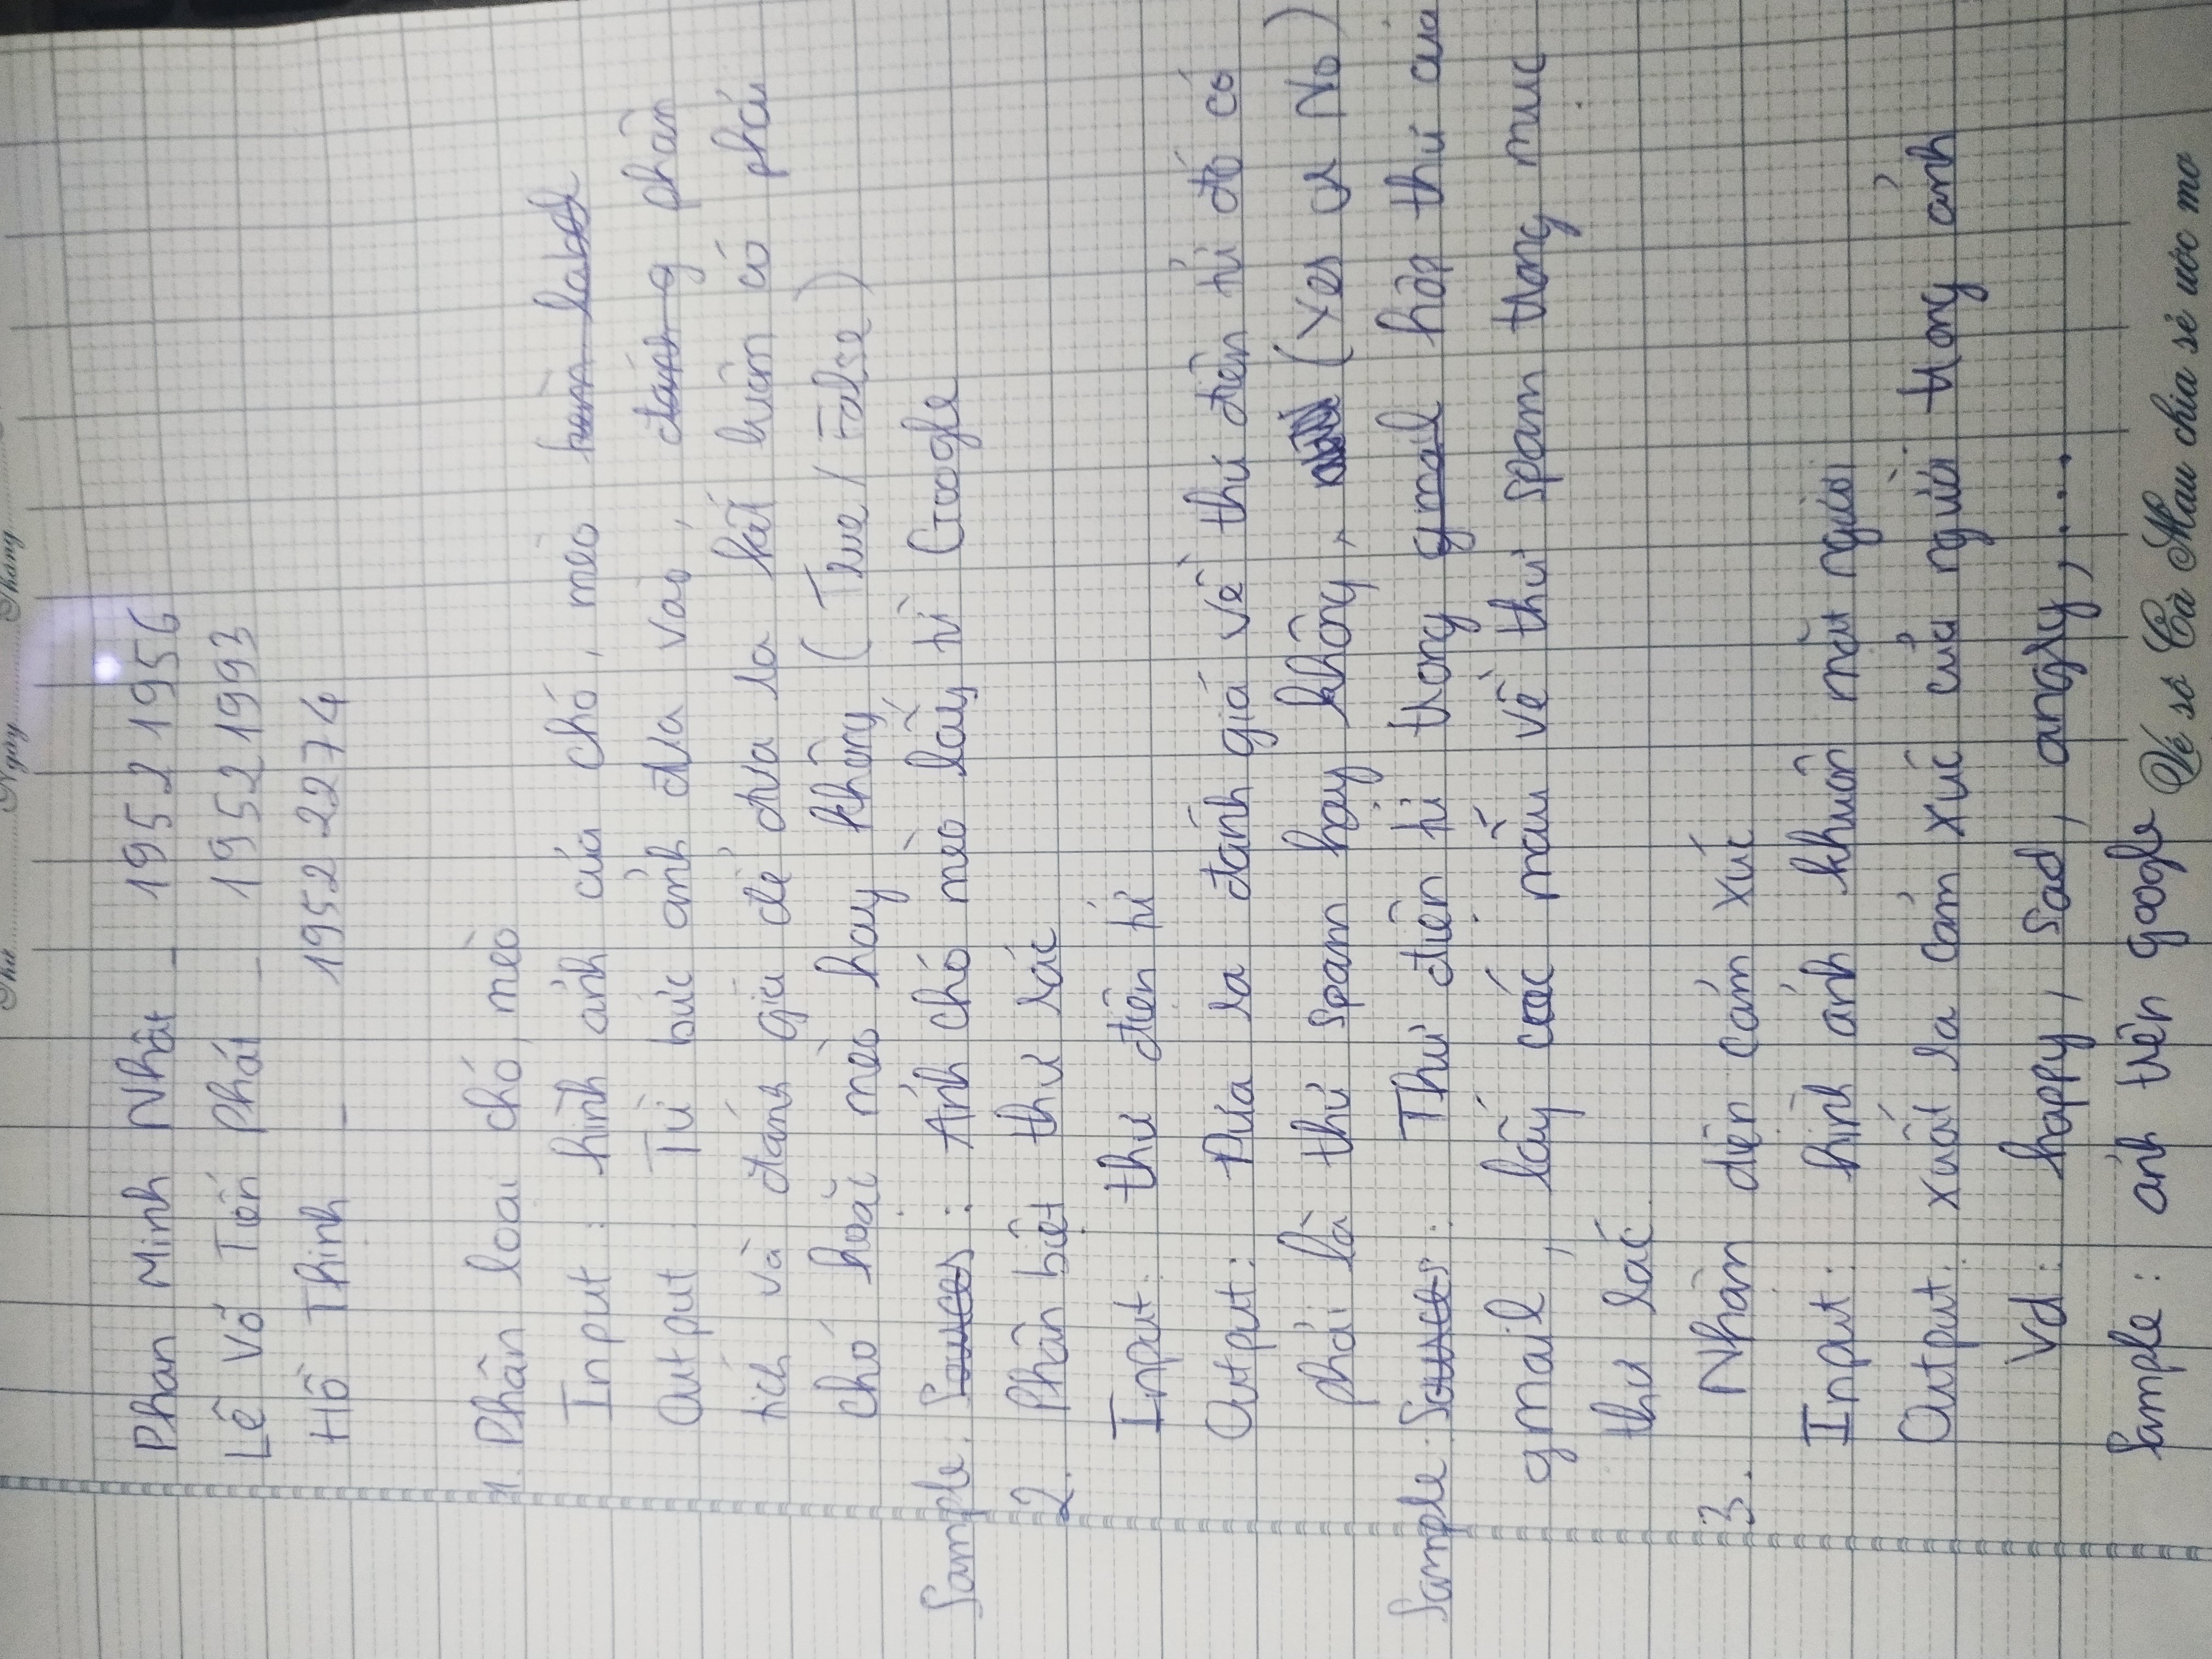 Thứ.............Ngày.............Tháng
Phan Minh Nhật - 19521956
Lê Võ Tiến Phát - 19521993
Hồ Thịnh - 19522274
1. Phân loại chó, mèo
Input: hình ảnh của chó, mèo kèm label
Output: Từ bức ảnh đưa vào, đánh g phân
tích và đánh giá để đưa ra kết luận có phải
chó hoặc mèo hay không (True / False)
Sample: Sources: Ảnh chó mèo lấy từ Google
2. Phân biệt thư rác
Input: thư điện tử
Output: Đưa ra đánh giá về thư điện tử đó có
phải là thư spam hay không, (Yes or No)
Sample: Sources: Thư điện tử trong gmail hộp thư của
gmail, lấy các mẫu về thư spam trong mục
thư rác.
3. Nhận diện cảm xúc
Input: hình ảnh khuôn mặt người
Output: xuất ra cảm xúc của người trong ảnh
Vd: happy, sad, angry, ...
Sample: ảnh trên google
Vé số Cà Mau chia sẻ ước mơ